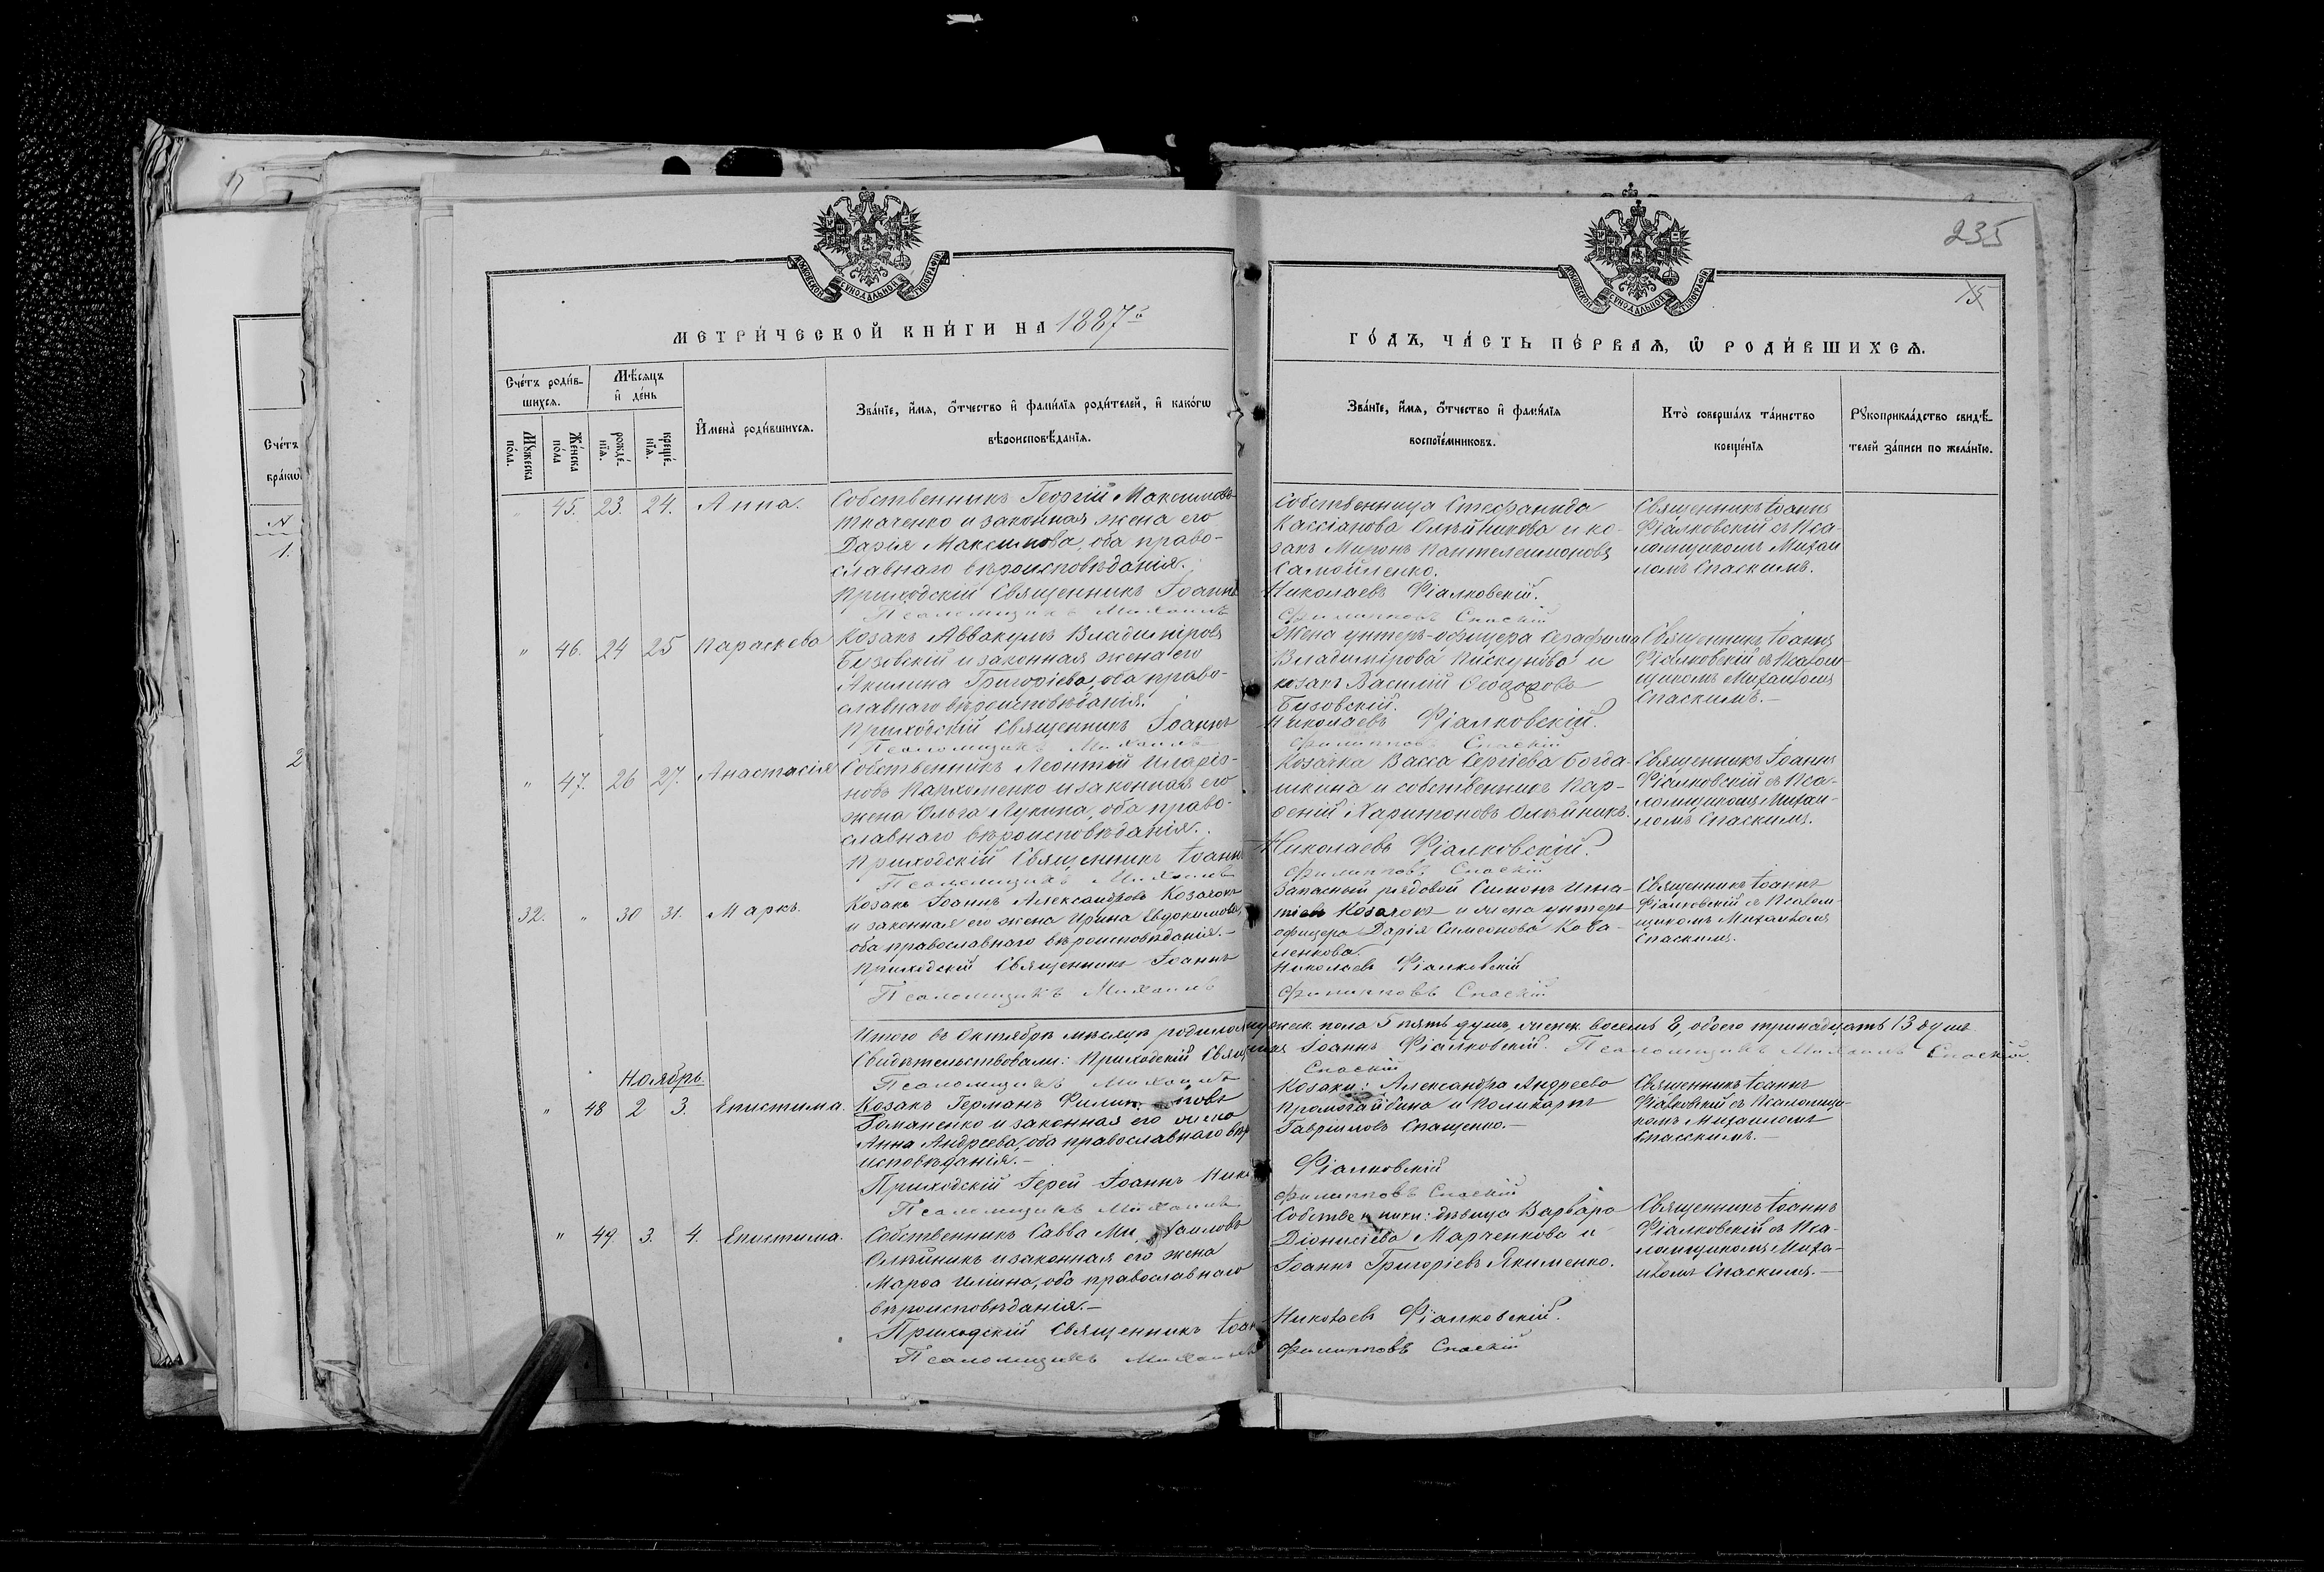 235
15
МЕТРИ́ЧЕСКОЙ КНИ́ГИ НА 1887й
ГО́ДЪ, ЧА́СТЬ ПЕ́РВАЯ, Ѡ РОДИ́ВШИХСЯ.
Сче́тъ роди́в-
шихся.
Мѣ́сяцъ
и҆ де́нь
Му́жеска
по́ла.
Же́нска
по́ла
рожде́-
нїя.
креще́-
нїя.
И҆мена̀ роди́вшихся.
Зва́нїе, и҆́мя, ѻ҆́тчество и҆ фами́лїя роди́телей, и҆ како́гѡ
вѣроисповѣ́данїя.
Зва́нїе, и҆́мя, ѻ҆́тчество и҆ фами́лїя
воспрїе́мниковъ.
Кто̀ соверша́лъ та́инство
креще́нїя
Рукоприкла́дство свидѣ́-
телей за́писи по жела́нїю.
Сче́тъ
бра́кѡ
N
1.
2
" 45. 23. 24. Анна.
Собственникъ Георгій Максимовъ
Ткаченко и законная жена его
Дарія Максимова, оба право-
славнаго вѣроисповѣданія.
Приходскій Священникъ Іоаннъ
Псаломщикъ Михаилъ
Собственница Стефанида
Кассіанова Олѣйникова и ко-
закъ Миронъ Пантелеимоновъ
Самойленко.
Николаевъ Фіалковскій.
Филипповъ Спаскій
Священникъ Іоаннъ
Фіалковскій съ Пса-
ломщикомъ Михаи
ломъ Спаскимъ.
" 46. 24 25 Параскева
Козакъ Аввакумъ Владиміровъ
Бузовскій и законная жена его
Акилина Григоріева, оба право-
славнаго вѣроисповѣданія.
Приходскій Священникъ Іоаннъ
Псаломщикъ Михаилъ
Жена унтеръ-офицера Серафима
Владимірова Пискунова и
козакъ Василій Ѳеодоровъ
Бузовскій.
Николаевъ Фіалковскій.
Филипповъ Спаскій
Священникъ Іоаннъ
Фіалковскій съ Псалом-
щикомъ Михаиломъ
Спаскимъ.—
" 47. 26 27. Анастасія
Собственникъ Леонтій Иларіо-
новъ Пархоменко и законная его
жена Ольга Лукина, оба право-
славнаго вѣроисповѣданія.
Приходскій Священникъ Іоаннъ
Псаломщикъ Михаилъ
Козачка Васса Сергіева Богда-
шкина и собственникъ Пар-
ѳеній Харитоновъ Олѣйникъ.
Николаевъ Фіалковскій.
Филипповъ Спаскій
Священникъ Іоаннъ
Фіалковскій съ Пса-
ломщикомъ Михаи-
ломъ Спаскимъ.
32. " 30 31. Маркъ.
Козакъ Іоаннъ Александровъ Козачокъ
и законная его жена Ирина Евдокимова,
оба православнаго вѣроисповѣданія.—
Приходскій Священникъ Іоаннъ
Псаломщикъ Михаилъ
Запасный рядовой Симонъ Игна-
тіевъ Козачокъ и жена унтеръ
офицера Дарія Симеонова Кова-
ленкова.
Николаевъ Фіалковскій
Филипповъ Спаскій
Священникъ Іоаннъ
Фіалковскій съ Псалом-
щикомъ Михаиломъ
Спаскимъ.
Итого въ Октябрѣ мѣсяцѣ родилось мужеск. пола 5 пять душъ, женск. восемь 8, обоего тринадцать 13 душъ.
Свидѣтельствовали: Приходскій Священникъ Іоаннъ Фіалковскій. Псаломщикъ Михаилъ Спаскій.
Псаломщикъ Михаилъ
Спаскій
Ноябрь.
" 48 2 3. Епистима.
Козакъ Германъ Филипповъ
Романенко и законная его жена
Анна Андреева, оба православнаго вѣро
исповѣданія.—
Приходскій Іерей Іоаннъ Нико
Псаломщикъ Михаилъ
Козаки: Александра Андреева
и Поликарпъ
Гавріиловъ Спащенко.—
Фіалковскій
Филипповъ Спаскій
Священникъ Іоаннъ
Фіалковскій съ Псаломщи-
комъ Михаиломъ
Спасскимъ.—
" 49. 3. 4. Епистима.
Собственникъ Савва Михаиловъ
Олѣйникъ и законная его жена
Марѳа Иліина, оба православнаго
вѣроисповѣданія.—
Приходскій Священникъ Іоан
Псаломщикъ Михаилъ
Собственники: дѣвица Варвара
Діонисіева Марченкова и
Іоаннъ Григоріевъ Якименко.
Николаевъ Фіалковскій.
Филипповъ Спаскій
Священникъ Іоаннъ
Фіалковскій съ Пса-
ломщикомъ Миха-
иломъ Спаскимъ.—